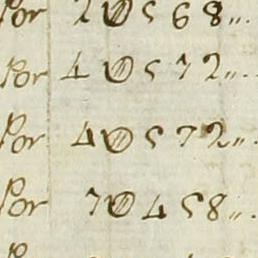 Por 2 0 5 6 8 ,,.
Por 4 0 5 7 2 ,,.
Por 4 0 5 7 2 ,,.
Por 7 0 4 5 8 ,,.